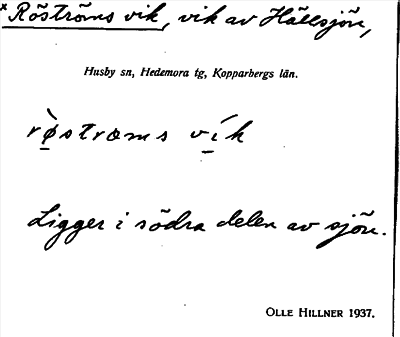 * Röströms vik, vik av Hällsjön,
Husby sn, Hedemora tg, Kopparbergs län.
rø̀stroms vík
Ligger i södra delen av sjön.
OLLE HILLNER 1937.